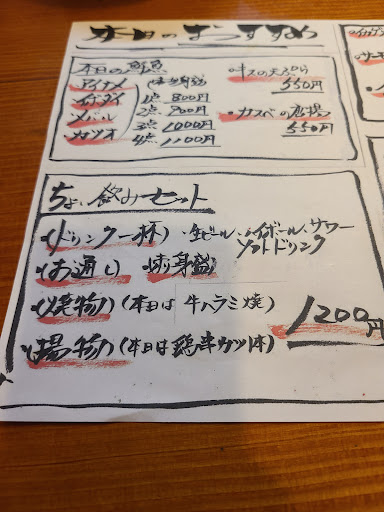 本日のおすすめ
本日の鮮魚
アイナメ
イボダイ
メバル
カツオ
(刺身盛)
1点 800円
2点 900円
3点 1000円
4点 1100円
・キスの天ぷら
550円
・カスベの唐揚
550円
ちょい飲みセット
(ドリンク一杯)・生ビール、ハイボール、サワー
ソフトドリンク
(お通し) (刺身盛)
(焼物)(本日は 牛ハラミ焼)
(揚物)(本日は鶏串カツ1本)
1200円